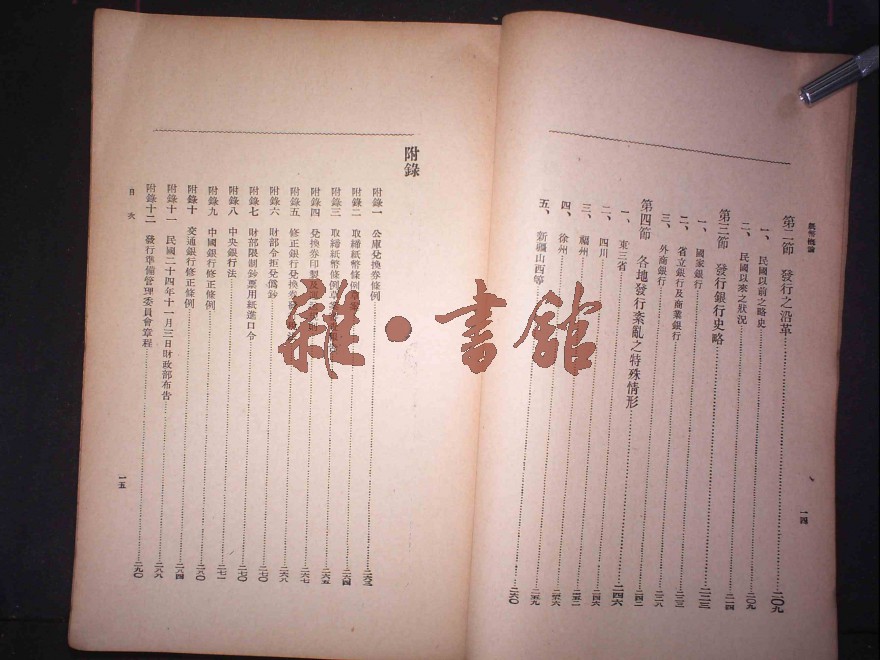 紙幣概論
第二節 發行之沿革……二〇九
一、 民國以前之略史……二〇九
二、 民國以來之狀況……二一四
第三節 發行銀行史略……二二三
一、 國家銀行……二二三
二、 省立銀行及商業銀行……二三八
三、 外商銀行……二四二
第四節 各地發行紊亂之特殊情形……二四六
一、 東三省……二四六
二、 四川……二五二
三、 福州……二五六
四、 徐州……二五九
五、 新疆山西等……二六〇
一四
附錄
附錄一 公庫兌換券條例……二六三
附錄二 取締紙幣條例草案……二六四
附錄三 取締紙幣條例草案……二六五
附錄四 兌換券印製及……二六七
附錄五 修正銀行兌換券……二六八
附錄六 財部令拒兌僞鈔……二七〇
附錄七 財部限制鈔票用紙進口令……二七〇
附錄八 中央銀行法……二七一
附錄九 中國銀行修正條例……二八〇
附錄十 交通銀行修正條例……二八四
附錄十一 民國二十四年十一月三日財政部布告……二八八
附錄十二 發行準備管理委員會章程……二九〇
目次
一五
雜·書館